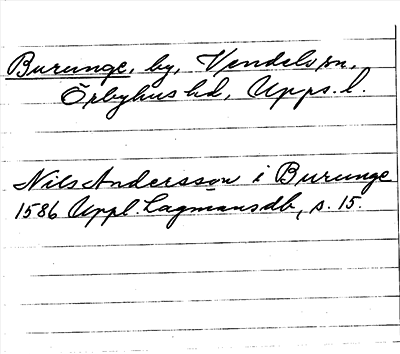 Burunge, by, Vendels sn,
Örbyhus hd, Upps. l.
Nils Andersson i Burunge
1586 Uppl. Lagmansdb, s. 15.